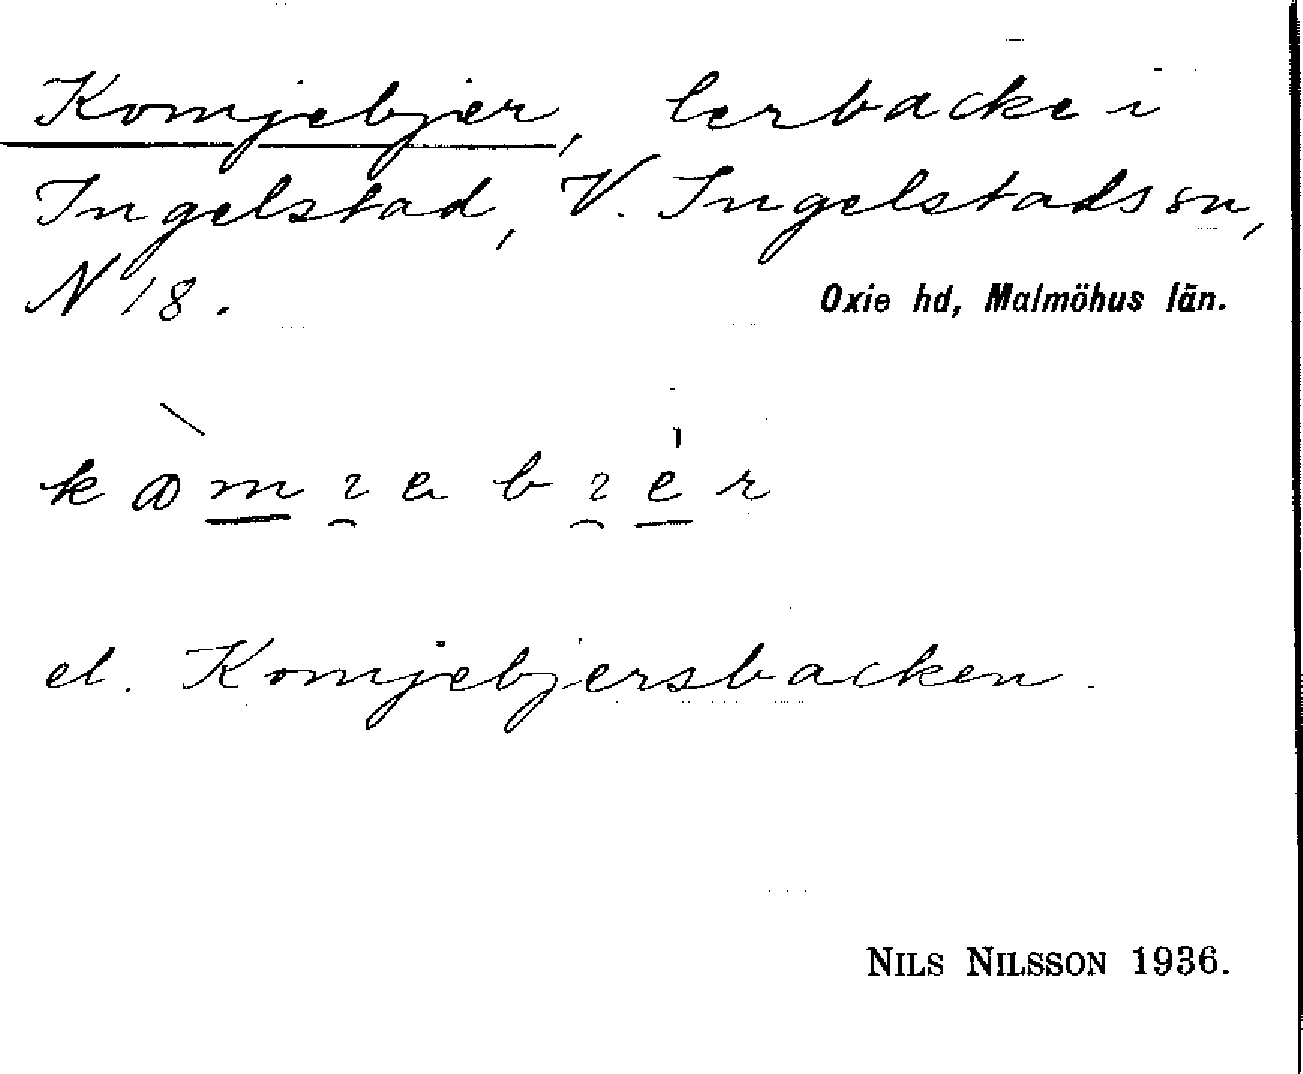 Komjebjer, lerbacke i
Ingelstad, V. Ingelstads sn,
N 18.
Oxie hd, Malmöhus län.
el. Komjebjersbacken.
NILS NILSSON 1936.